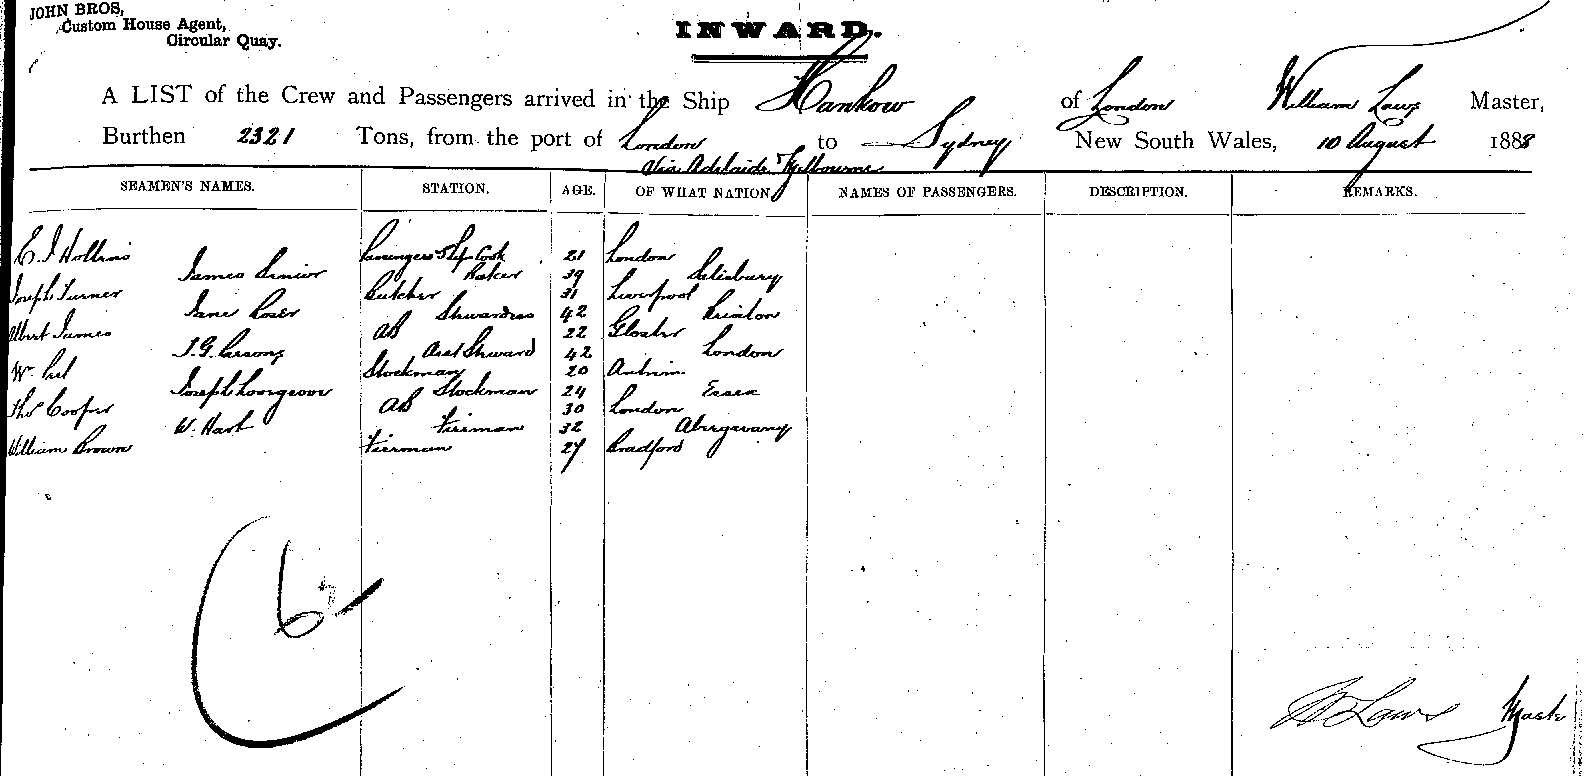 JOHN BROS,
Custom House Agent,
Circular Quay.
INWARD.
A LIST of the Crew and Passengers arrived in the Ship Hankow of London William Laws Master,
Burthen 2321 Tons, from the port of London to Sydney New South Wales, 10 August 1888
Via Adelaide & Melbourne
SEAMEN'S NAMES. STATION. AGE. OF WHAT NATION NAMES OF PASSENGERS. DESCRIPTION. REMARKS.
E. J Hollins Passengers & Ship Cook 21 London
James Senior Baker 39 Salisbury
Joseph Turner Butcher 31 Liverpool
Jane Stewardess 42
Albert James AB 22 Gloster
J. G. Parsons Asst Steward 42 London
Wm Stockman 20 Antrim
Joseph Stockman 24 Essex
Thos Cooper AB 30 London
W. Hart Fireman 32 Abergavany
William Brown Fireman 27 Bradford
6
W Laws Master